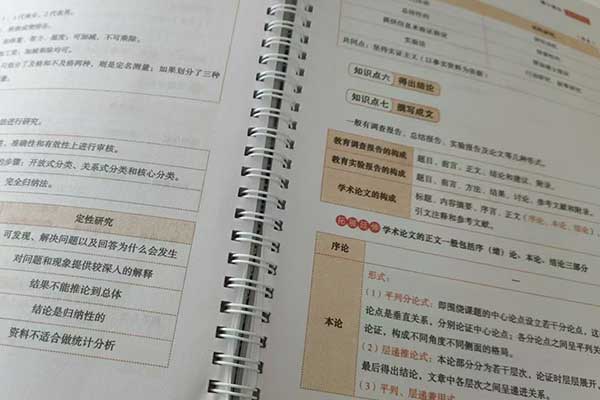 1、1代表男，2代表男。
加工资；加减乘除均可。
可划分了及格和不及格两种，则是定名测量；如果划分了三种
法进行研究。
准确性和有效性上进行审核。
的步骤：开放式分类、关系式分类和核心分类。
完全归纳法。
定性研究
可发现、解决问题以及回答为什么会发生
对问题和现象提供较深入的解释
结果不能推论到总体
结论是归纳性的
资料不适合做统计分析
总结性的
实验法
共同点：坚持实证主义（以事实资料为依据）
知识点六 得出结论
知识点七 撰写成文
一般有调查报告、总结报告、实验报告及论文等几种形式。
教育调查报告的构成 题目、前言、正文、结论和建议、附录。
教育实验报告的构成 题目、前言、方法、结果、讨论、参考文献和附录。
学术论文的构成 标题、内容摘要、序言、正文（序论、本论、结论）、
引文注释和参考文献。
学术论文的正文一般包括序（绪）论、本论、结论三部分
序论
本论
形式：
（1）平列分论式：即围绕课题的中心论点设立若干分论点，这
论点是垂直关系，分别论证中心论点；各分论点之间呈平列关
论证，构成不同角度不同侧面的格局。
（2）层递推论式：本论部分分为若干层次，论证时层层展开，
最后得出结论，文章中各层次之间呈递进关系。
（3）平列、层递兼用式